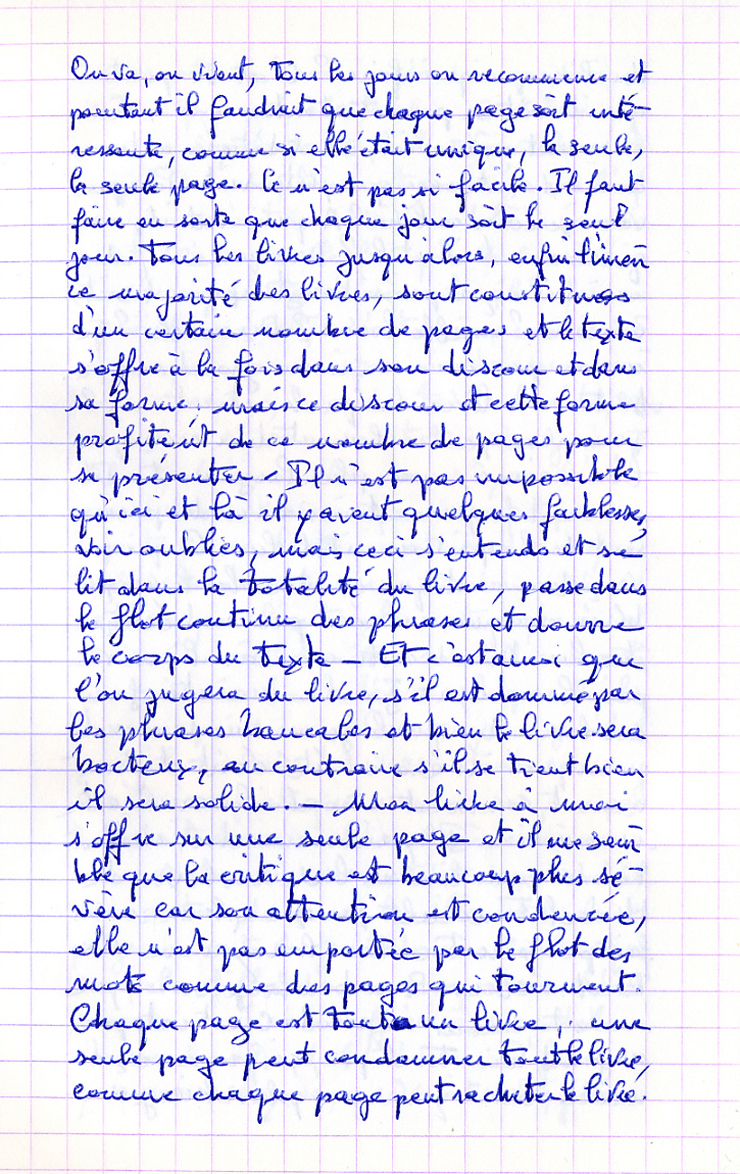 On va, on vient, tous les jours on recommence et
pourtant il faudrait que chaque page soit inté-
ressante, comme si elle était unique, la seule,
la seule page. Ce n'est pas si facile. Il faut
faire en sorte que chaque jour soit le seul
jour. Tous les livres jusqu'alors, enfin l'imen
ce majorité des livres, sont constitués
d'un certain nombre de pages et le texte
s'offre à la fois dans son discour et dans
sa forme, mais ce discour et cette forme
profitent de ce nombre de pages pour
se présenter - Il n'est pas impossible
qu'ici et là il y avent quelques faiblesses,
voir oublies, mais ceci s'entends et se
lit dans la totalité du livre, passe dans
le flot continu des phrases et donne
le corps du texte - Et c'est ainsi que
l'on jugera du livre, s'il est dominé par
les phrases bancales et bien le livre sera
bocteux, au contraire s'il se tient bien
il sera solide. - Mon livre à moi
s'offre sur une seule page et il me sem
ble que la critique est beaucoup plus sé-
vère car son attention est condencée,
elle n'est pas emportée par le flot des
mots comme des pages qui tournent.
Chaque page est tout un livre, une
seule page peut condamner tout le livre,
comme chaque page peut racheter le livre.